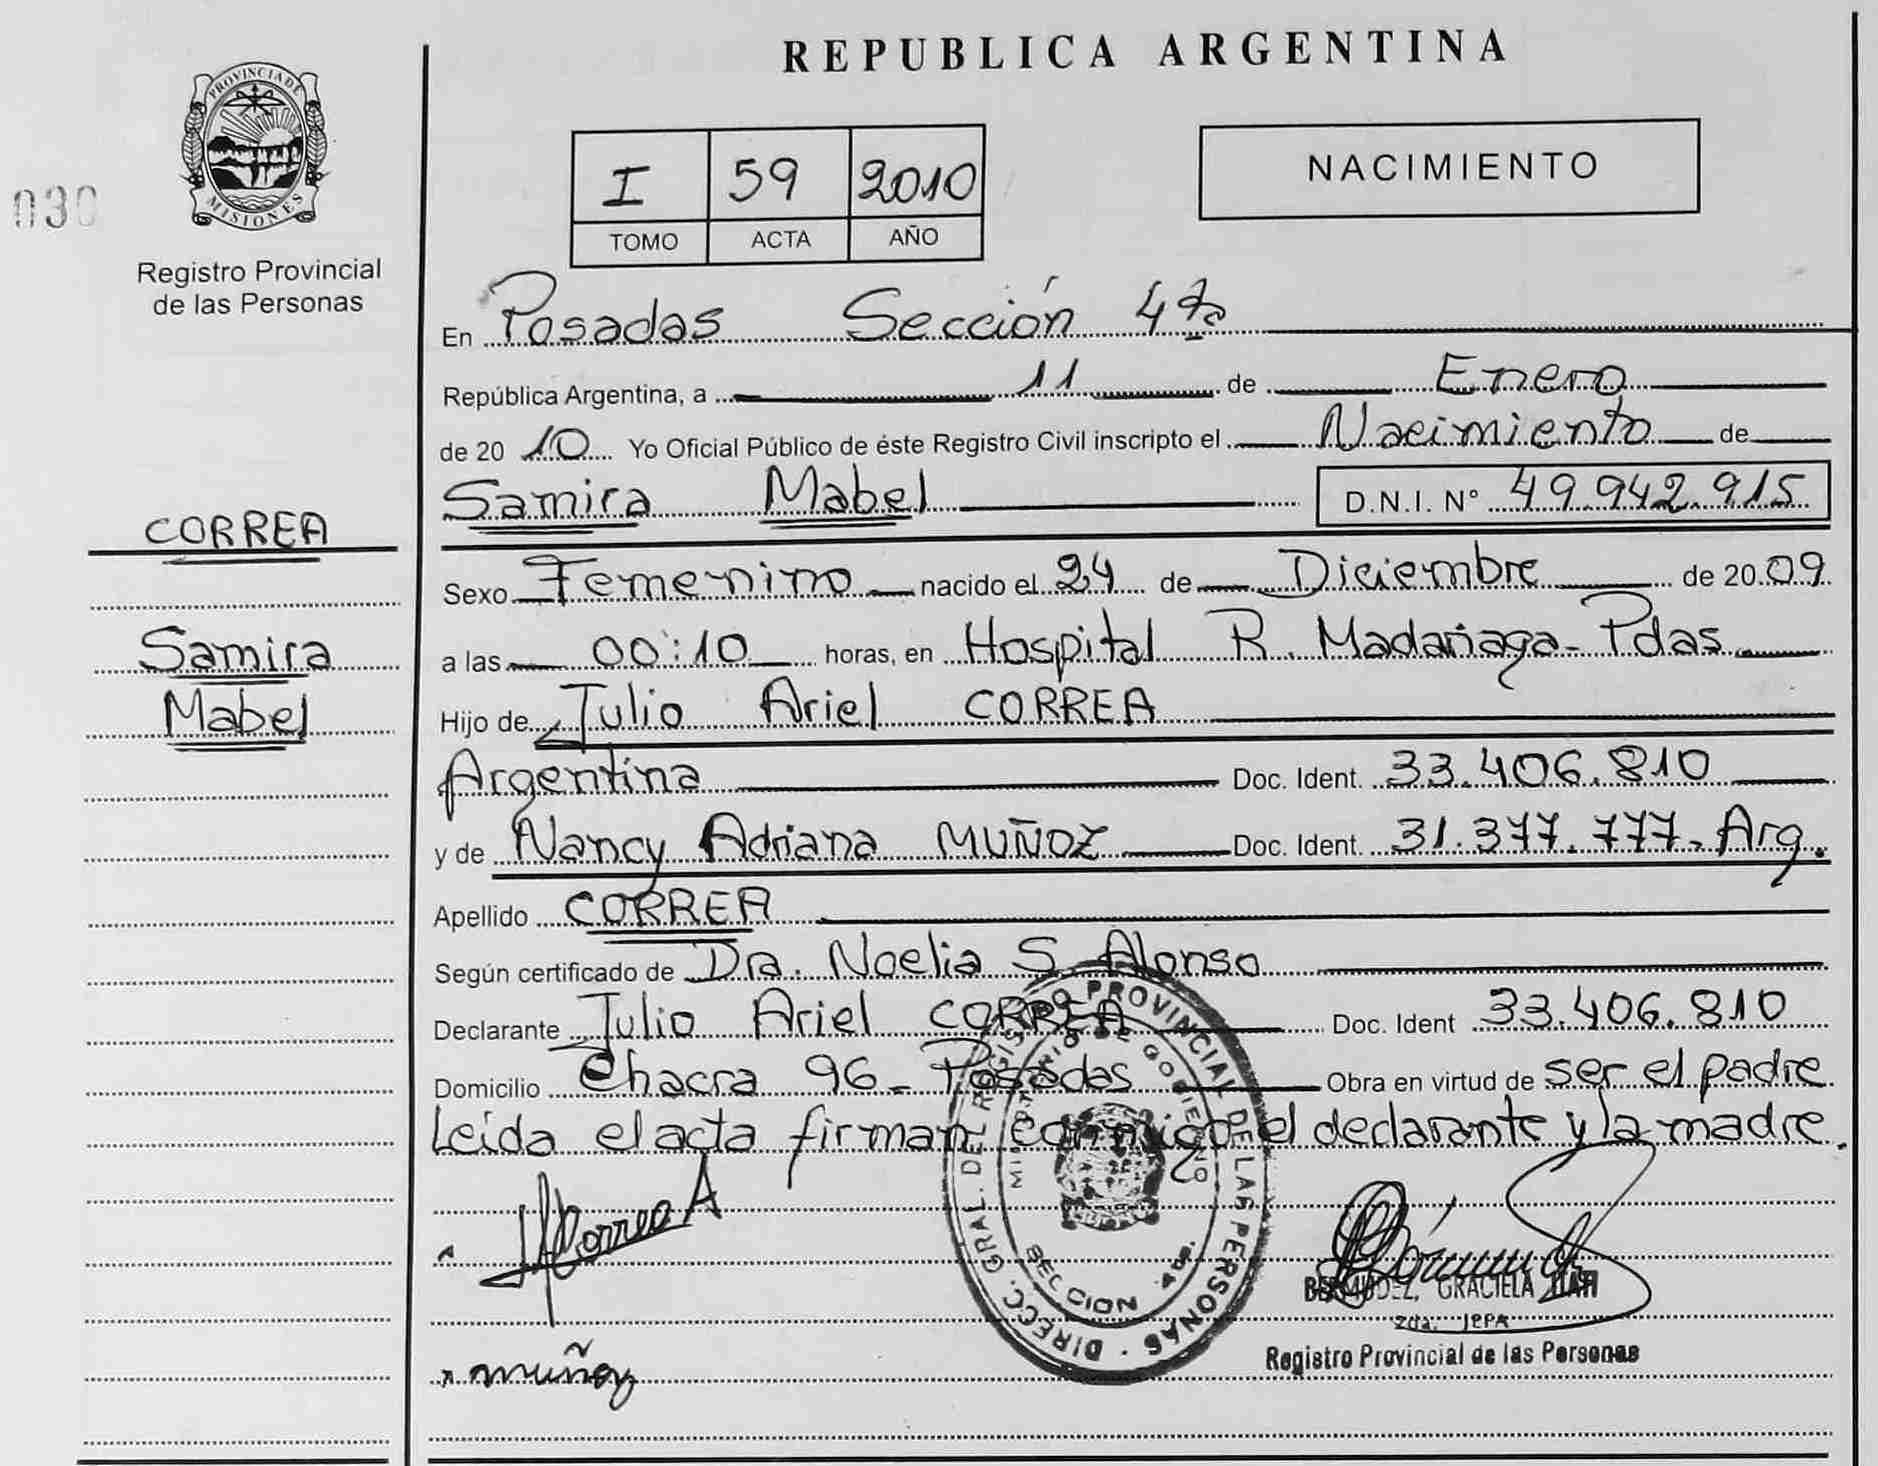 REPUBLICA ARGENTINA
PROVINCIA DE MISIONES
030
Registro Provincial
de las Personas
I 59 2010
TOMO ACTA AÑO
NACIMIENTO
En Posadas Sección 4ta
República Argentina, a 11 de Enero
de 20 10 Yo Oficial Público de éste Registro Civil inscripto el Nacimiento de
Samira Mabel D.N.I. N° 49.942.915
CORREA
Samira
Mabel
Sexo Femenino nacido el 24 de Diciembre de 20 09
a las 00:10 horas, en Hospital R. Madariaga - Pdas
Hijo de Julio Ariel CORREA
Argentina Doc. Ident. 33.406.810
y de Nancy Adriana MUÑOZ Doc. Ident. 31.377.777. Arg.
Apellido CORREA
Según certificado de Dra. Noelia S. Alonso
Declarante Julio Ariel CORREA Doc. Ident 33.406.810
Domicilio Chacra 96 - Posadas Obra en virtud de ser el padre
Leída el acta firman conmigo el declarante y la madre.
DIRECC. GRAL. DEL REGISTRO PROVINCIAL DE LAS PERSONAS
MINISTERIO DE GOBIERNO
SECCION 4ta.
Correa A
BERMUDEZ, GRACIELA ITATI
2da. JEFA
Registro Provincial de las Personas
x muñoz